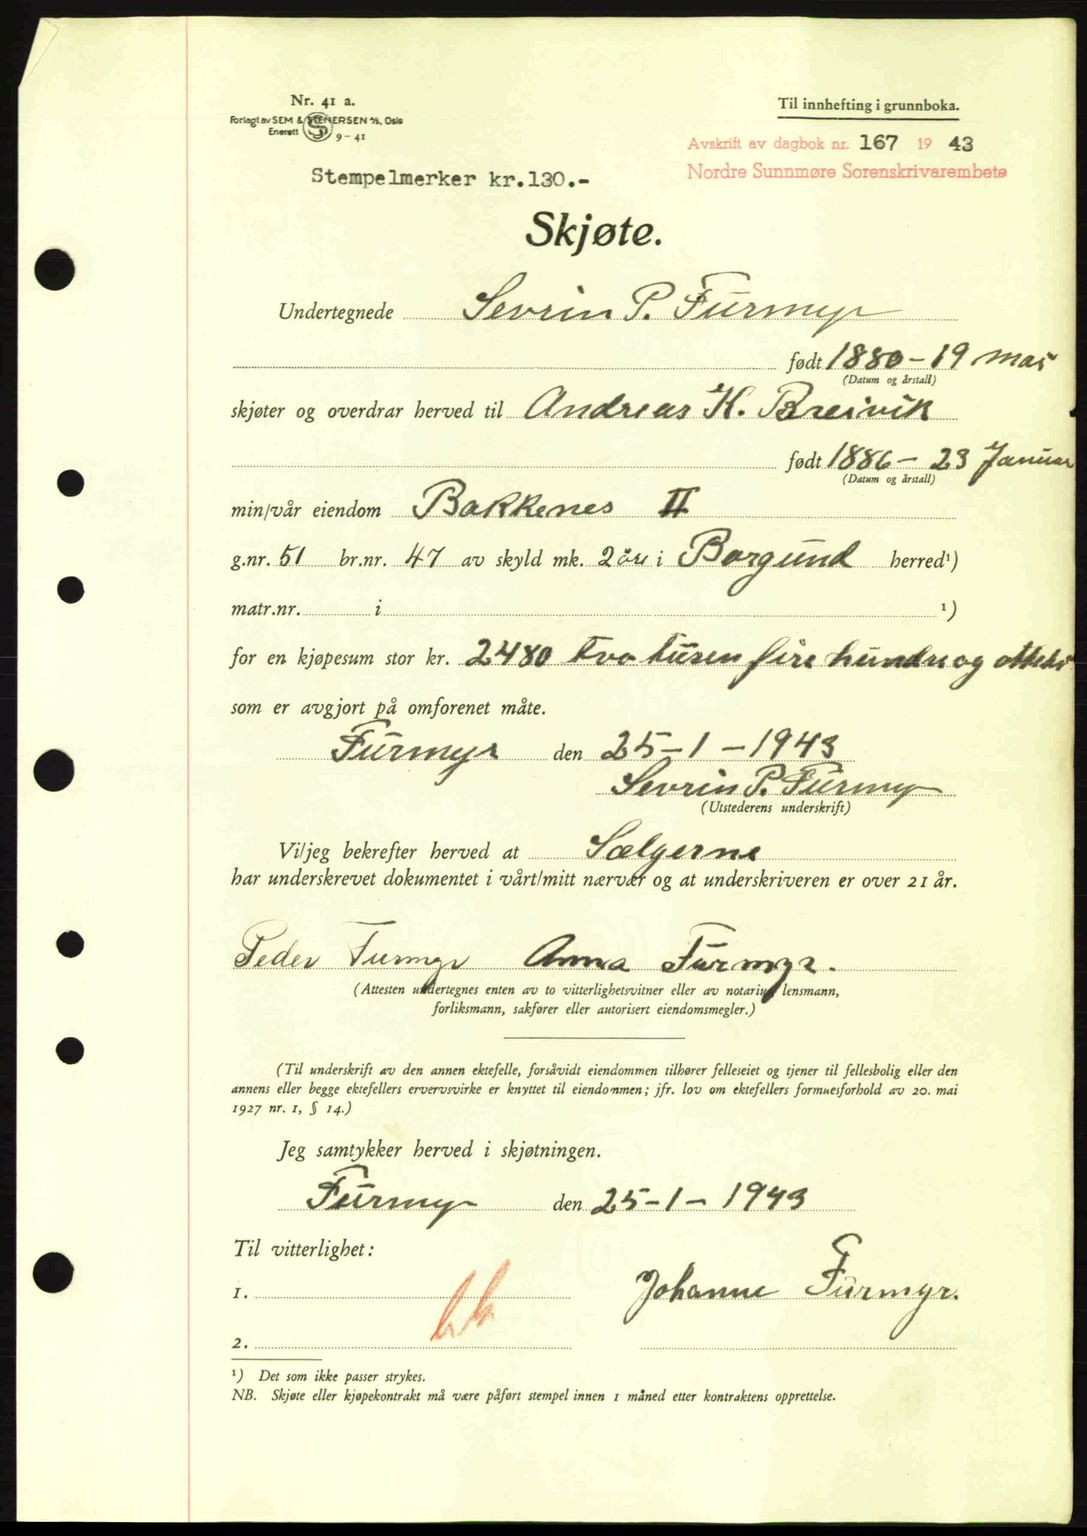 Nr. 41 a.
Forlagt av SEM & STENERSEN A/S, Oslo
Enerett 9-41
Til innhefting i grunnboka.
Avskrift av dagbok nr. 167 19 43
Nordre Sunnmøre Sorenskrivarembete
Stempelmerker kr.130.-
Skjøte.
Undertegnede Sevrin P. Furmyr
født 1880-19 mai
(Datum og årstall)
skjøter og overdrar herved til Andreas K. Breivik
født 1886-23 Januar
(Datum og årstall)
min/vår eiendom Bakkenes II
g.nr. 51 br.nr. 47 av skyld mk. 2 øre i Borgund herred¹)
matr.nr. i ¹)
for en kjøpesum stor kr. 2480 tvo tusen fire hundre og otteti
som er avgjort på omforenet måte.
Furmyr den 25-1-1943
Sevrin P. Furmyr
(Utstederens underskrift)
Vi/jeg bekrefter herved at Sælgerne
har underskrevet dokumentet i vårt/mitt nærvær og at underskriveren er over 21 år.
Peder Furmyr Anna Furmyr.
(Attesten undertegnes enten av to vitterlighetsvitner eller av notarius, lensmann,
forliksmann, sakfører eller autorisert eiendomsmegler.)
(Til underskrift av den annen ektefelle, forsåvidt eiendommen tilhører felleseiet og tjener til fellesbolig eller den
annens eller begge ektefellers ervervsvirke er knyttet til eiendommen; jfr. lov om ektefellers formuesforhold av 20. mai
1927 nr. 1, § 14.)
Jeg samtykker herved i skjøtningen.
Furmyr den 25-1-1943
Til vitterlighet:
1. Johanne Furmyr.
2.
¹) Det som ikke passer strykes.
NB. Skjøte eller kjøpekontrakt må være påført stempel innen 1 måned etter kontraktens opprettelse.